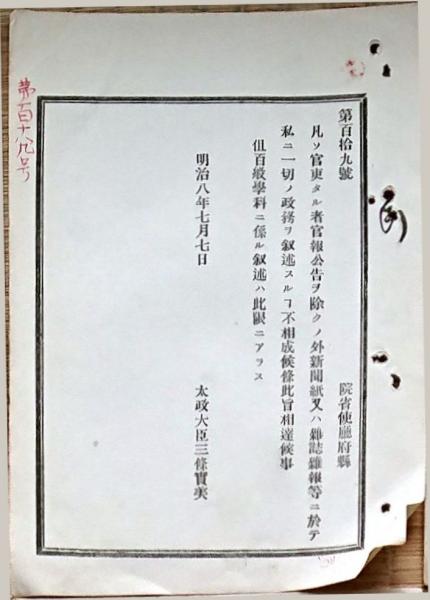 第百拾九號　院省使廳府縣
凡ソ官吏タル者官報公告ヲ除クノ外新聞紙又ハ雜誌雜報等ニ於テ
私ニ一切ノ政務ヲ叙述スルヿ不相成候條此旨相達候事
但百般學科ニ係ル叙述ハ此限ニアラス
明治八年七月七日　太政大臣三條實美
第百十九号